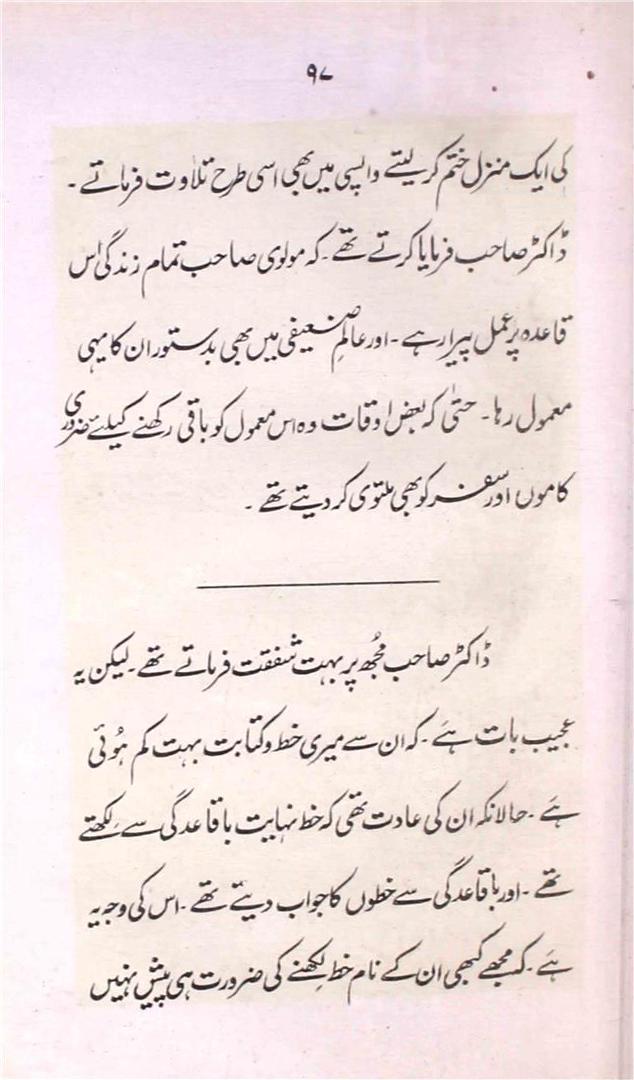 ۹۷
کی ایک منزل ختم کر لیتے واپسی میں بھی اسی طرح تلاوت فرماتے ۔
ڈاکٹر صاحب فرمایا کرتے تھے ۔ کہ مولوی صاحب تمام زندگی اس
قاعدہ پر عمل پیرا رہے ۔ اور عالمِ ضعیفی میں بھی بدستور ان کا یہی
معمول رہا ۔ حتیٰ کہ بعض اوقات وہ اس معمول کو باقی رکھنے کیلئے ضروری
کاموں اور سفر کو بھی ملتوی کر دیتے تھے ۔
ڈاکٹر صاحب مُجھ پر بہت شفقت فرماتے تھے ۔ لیکن یہ
عجیب بات ہَے ۔ کہ ان سے میری خط و کتابت بہت کم ہُوئی
ہَے ۔ حالانکہ ان کی عادت تھی کہ خط نہایت باقاعدگی سے لِکھتے
تھے ۔ اور باقاعدگی سے خطوں کا جواب دیتے تھے ۔ اس کی وجہ یہ
ہَے ۔ کہ مجھے کبھی ان کے نام خط لِکھنے کی ضرورت ہی پیش نہیں